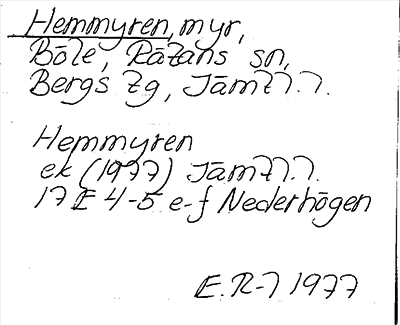 Hemmyren, myr,
Böle, Rätans sn,
Bergs tg, Jämtl.
Hemmyren
ek (1977) Jämtl.
17E 4-5 e-f Nederhögen
E.R-l 1977